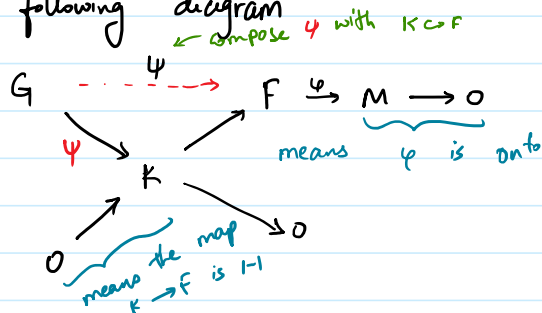 following diagram
compose ψ with K ⊂ F
ψ
G F φ M → 0
ψ
means φ is onto
K
0
0
means the map
K → F is 1-1